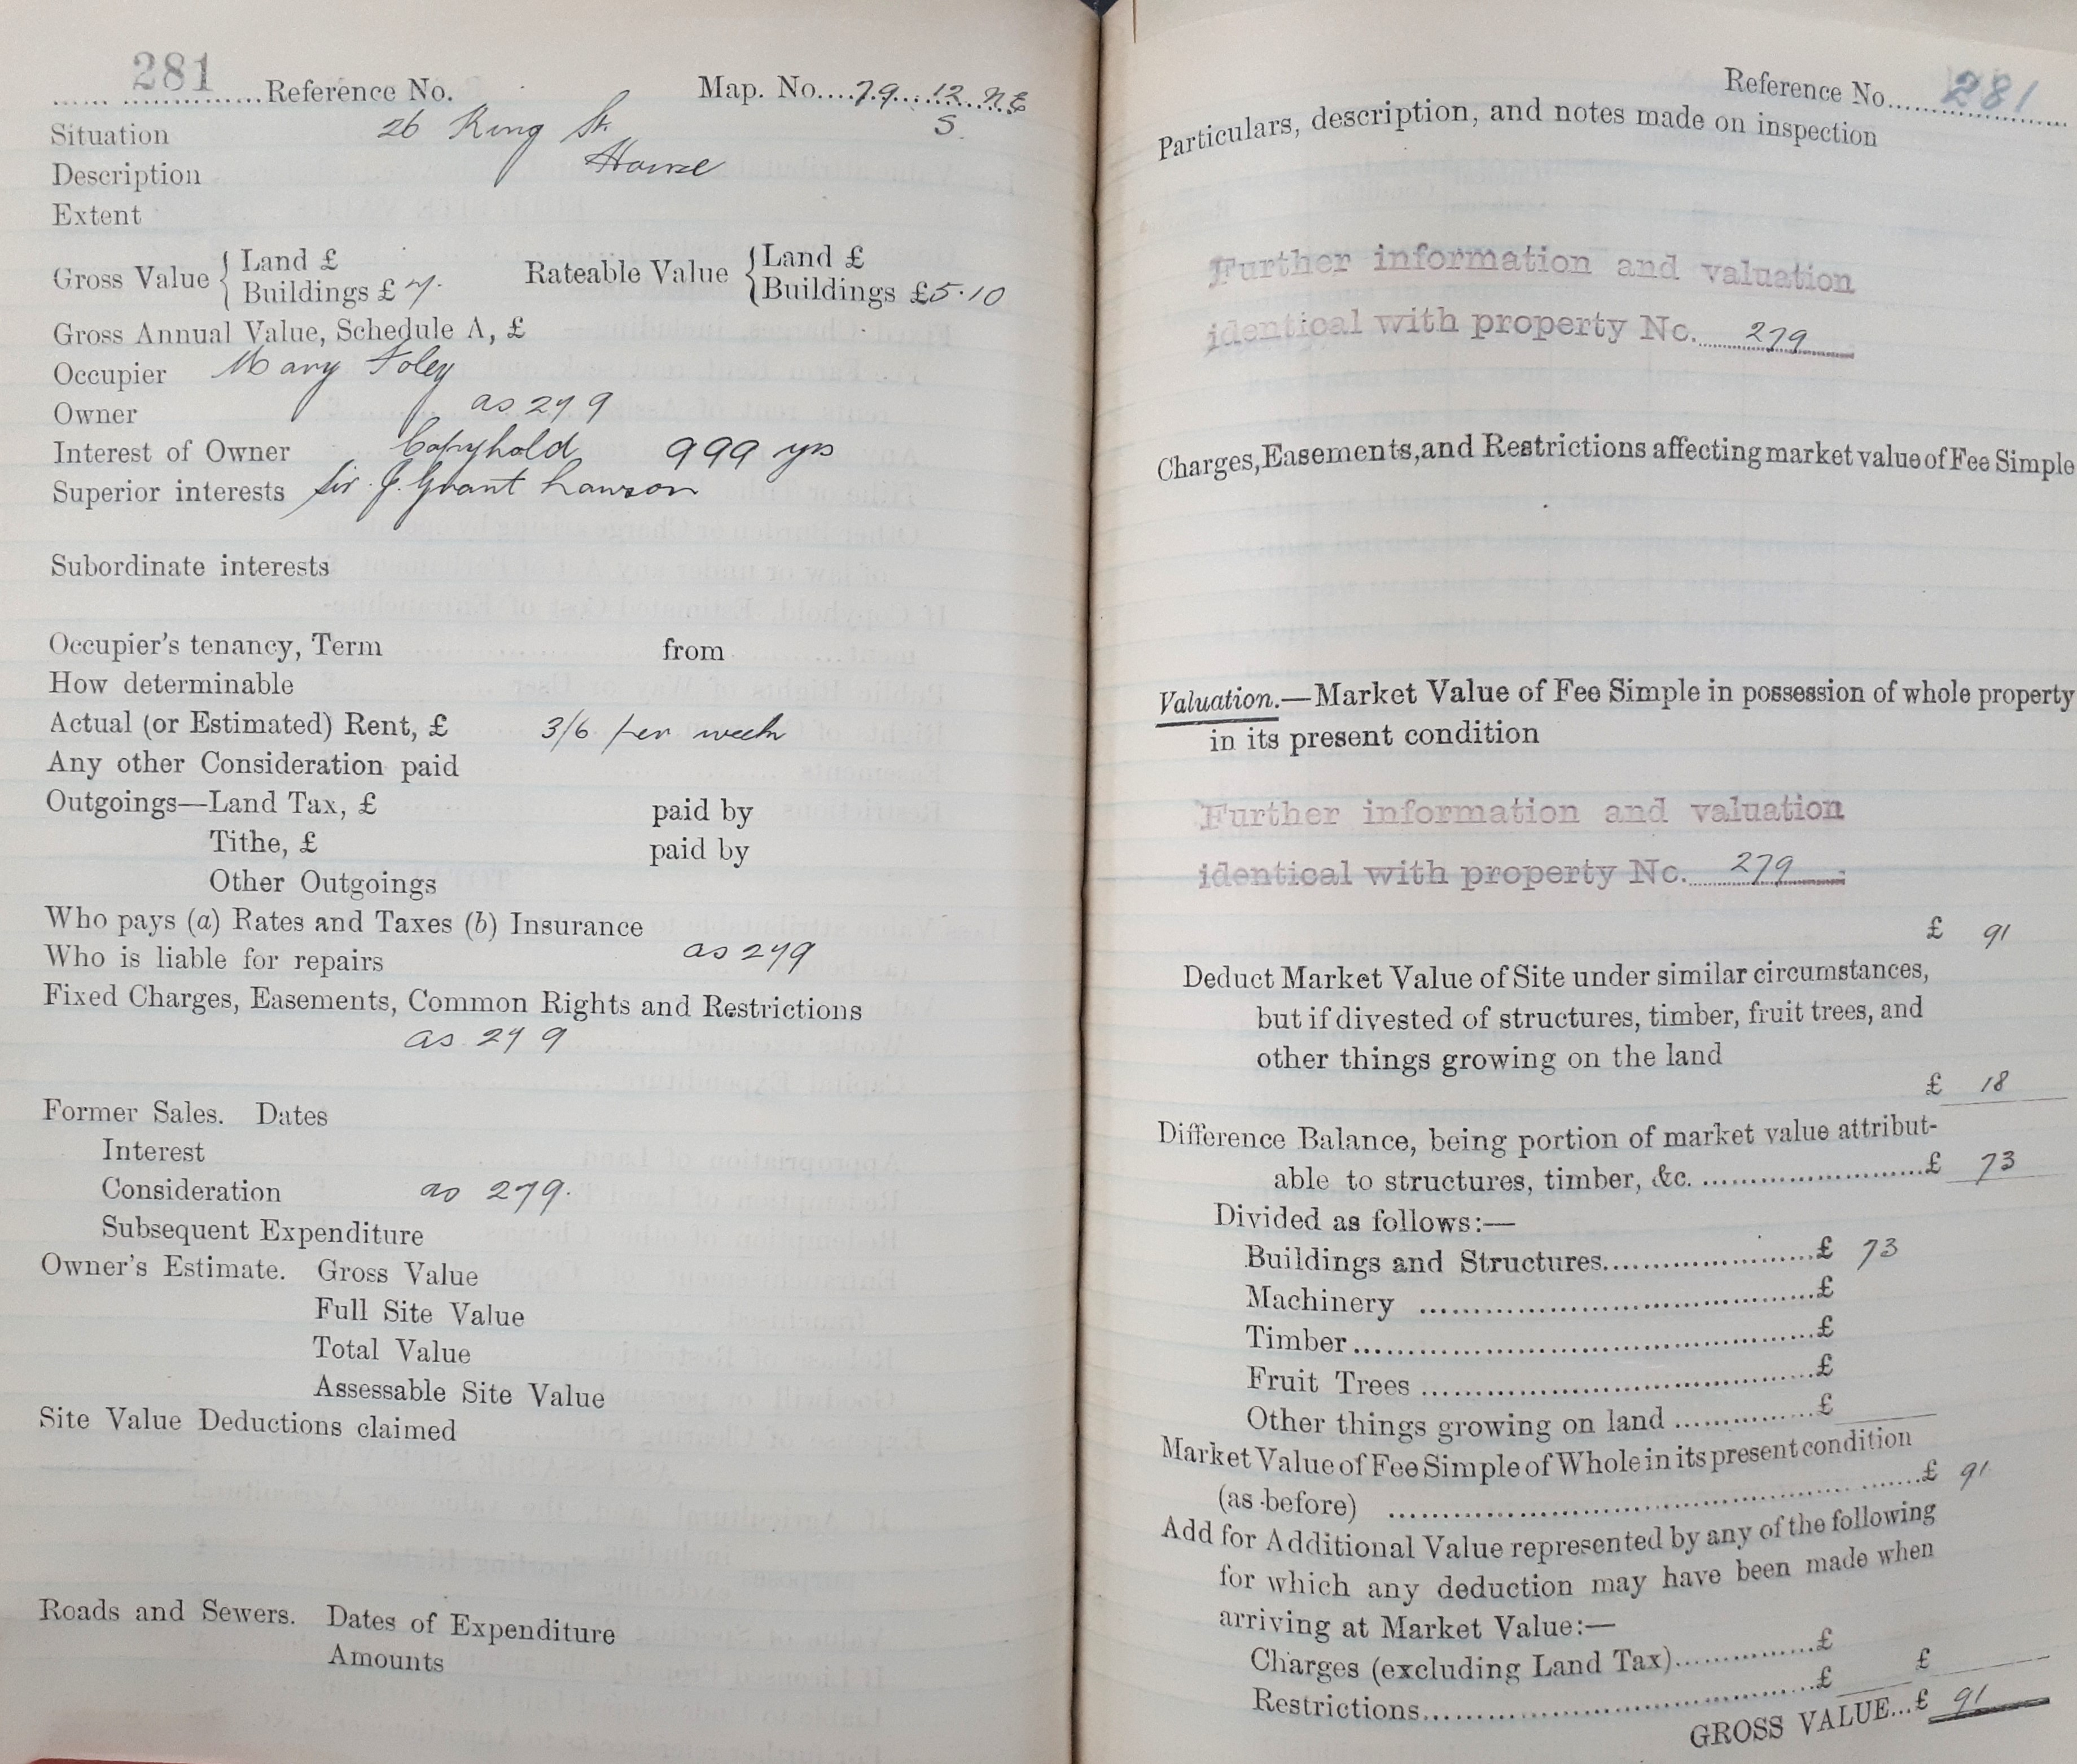 281 Reference No. Map. No. 79. 12. N E
S.
Situation 26 King St.
Description House
Extent
Gross Value { Land £
Buildings £ 7. Rateable Value { Land £
Buildings £5.10
Gross Annual Value, Schedule A, £
Occupier Mary Foley
Owner as 279
Interest of Owner Copyhold 999 yrs
Superior interests Sir. J. Grant Lawson
Subordinate interests
Occupier's tenancy, Term from
How determinable
Actual (or Estimated) Rent, £ 3/6 per week
Any other Consideration paid
Outgoings—Land Tax, £ paid by
Tithe, £ paid by
Other Outgoings
Who pays (a) Rates and Taxes (b) Insurance
Who is liable for repairs as 279
Fixed Charges, Easements, Common Rights and Restrictions
as 279
Former Sales. Dates
Interest
Consideration as 279.
Subsequent Expenditure
Owner's Estimate. Gross Value
Full Site Value
Total Value
Assessable Site Value
Site Value Deductions claimed
Roads and Sewers. Dates of Expenditure
Amounts
Reference No. 281
Particulars, description, and notes made on inspection
Further information and valuation
identical with property No. 279
Charges, Easements, and Restrictions affecting market value of Fee Simple
Valuation.—Market Value of Fee Simple in possession of whole property
in its present condition
Further information and valuation
identical with property No. 279
£ 91
Deduct Market Value of Site under similar circumstances,
but if divested of structures, timber, fruit trees, and
other things growing on the land
£ 18
Difference Balance, being portion of market value attribut-
able to structures, timber, &c. £ 73
Divided as follows:—
Buildings and Structures £ 73
Machinery £
Timber £
Fruit Trees £
Other things growing on land £
Market Value of Fee Simple of Whole in its present condition
(as before) £ 91
Add for Additional Value represented by any of the following
for which any deduction may have been made when
arriving at Market Value:—
Charges (excluding Land Tax) £
Restrictions £ £
GROSS VALUE...£ 91